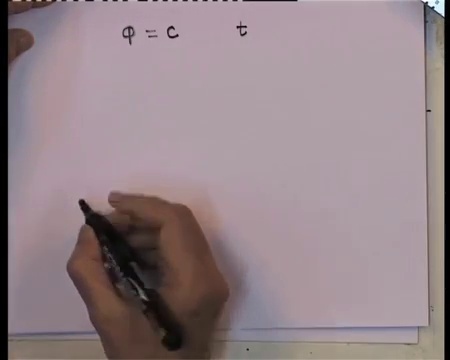 φ = c t